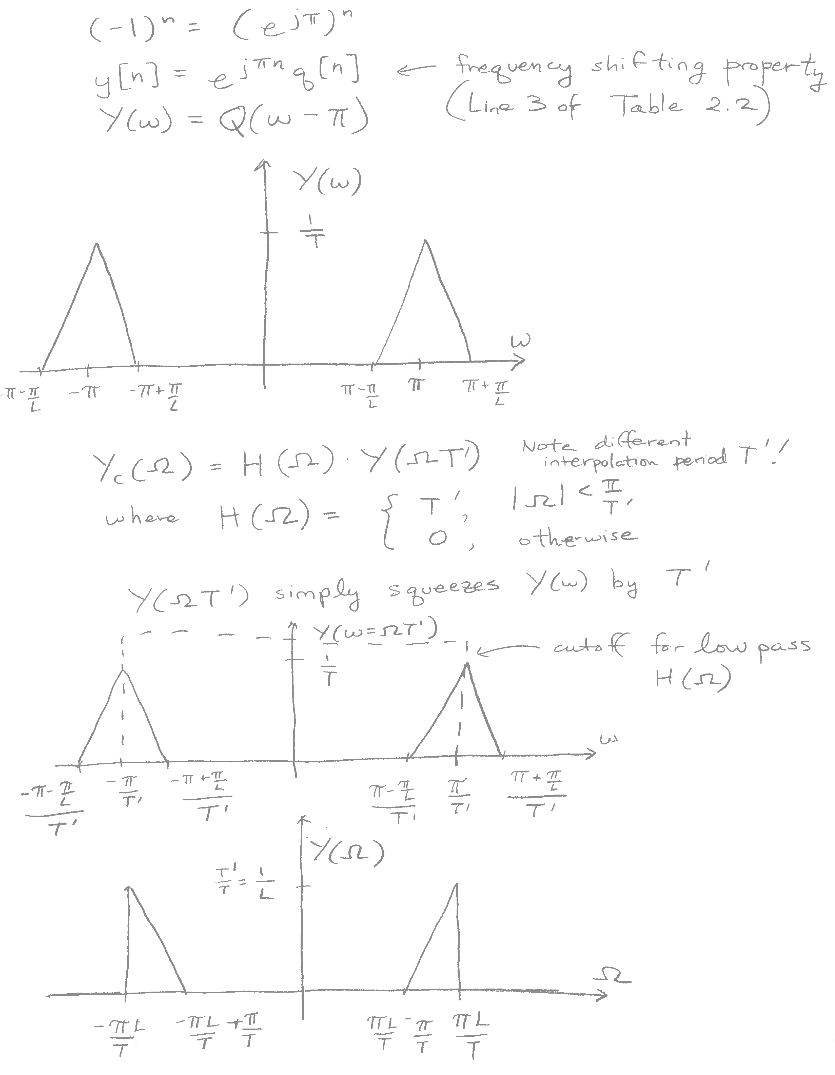 (-1)ⁿ = (e^{jπ})ⁿ
y[n] = e^{jπn} q[n] ← frequency shifting property
(Line 3 of Table 2.2)
Y(ω) = Q(ω - π)
Y(ω)
1/T
ω
-π-π/L -π -π+π/L π-π/L π π+π/L
Y_c(Ω) = H(Ω) · Y(ΩT') Note different
interpolation period T'!
where H(Ω) = { T', |Ω| < π/T'
0, otherwise
Y(ΩT') simply squeezes Y(ω) by T'
Y(ω=ΩT')
1/T
← cutoff for low pass
H(Ω)
ω
(-π-π/L)/T' -π/T' (-π+π/L)/T' (π-π/L)/T' π/T' (π+π/L)/T'
Y(Ω)
T'/T = 1/L
Ω
-πL/T -πL/T + π/T πL/T - π/T πL/T